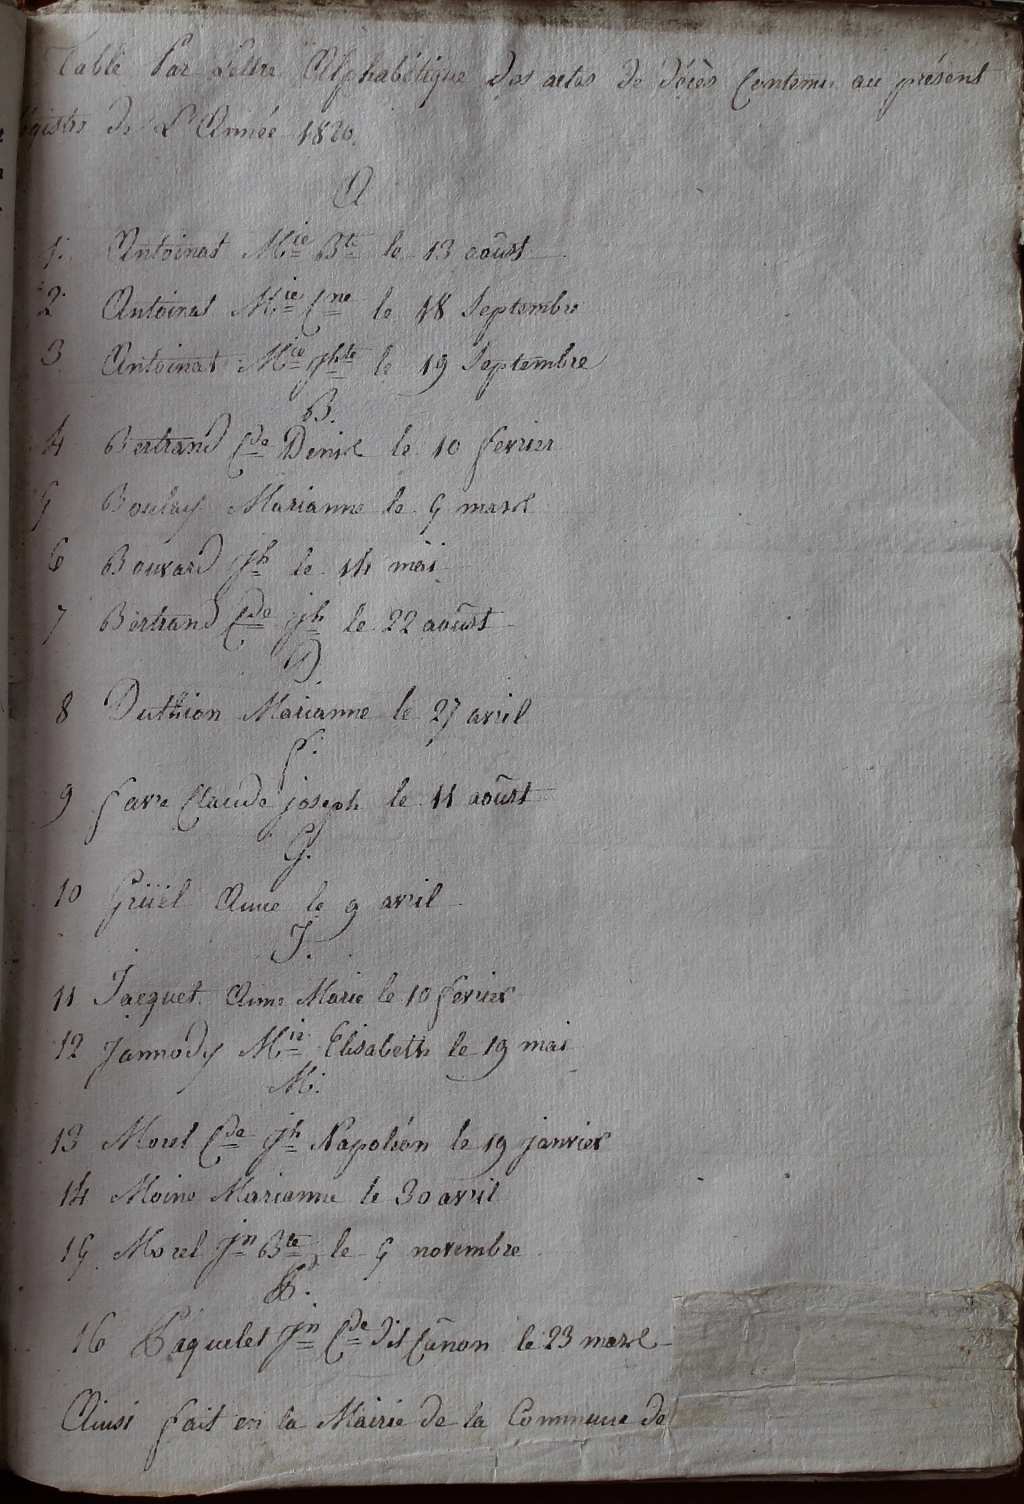 Table Par Lettre Alphabétique Des actes De Décès Contenu au présent
Registre De L'Année 1820.
A
1. Antoinat M.ie B.te le 13 aoûst
2. Antoinat M.ie C.ne le 18 Septembre
3 Antoinat M.ie Jh.te le 19 Septembre
B.
4 Bertrand C.de Denis le 10 fevrier
5 Boulay Marianne le 5 mars
6 Bouvard J.h le 14 mai
7 Bertrand C.de j.h le 22 aoûst
D
8 Duthion Marianne le 27 avril
f.
9 favre Claude joseph le 11 aoûst
G.
10 Grüel Anne le 9 avril
J.
11 Jacquet Anne Marie le 10 fevrier
12 Jannody M.ie Elisabeth le 19 mai
M.
13 Morel C.de J.h Napoléon le 19 janvier
14 Moine Marianne le 30 avril
15 Morel J.n B.te le 5 novembre
P.
16 Paquelet J.n C.de dit Canon le 23 mars
Ainsi fait en la Mairie de la Commune de